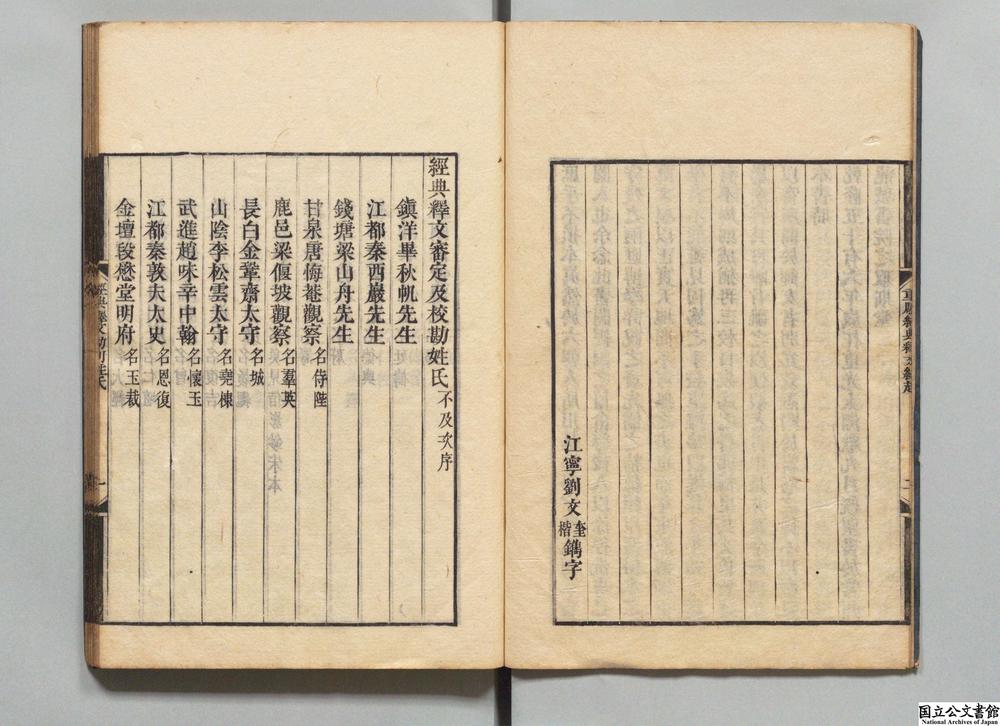 江寧劉文奎楷鐫字
經典釋文審定及校勘姓氏不及次序
鎭洋畢秋帆先生
江都秦西巖先生
錢塘梁山舟先生
甘泉唐悔菴觀察名侍陛
鹿邑梁偃坡觀察名羣英
長白金鞏齋太守名城
山陰李松雲太守名堯棟
武進趙味辛中翰名懷玉
江都秦敦夫太史名恩復
金壇段懋堂明府名玉裁
国立公文書館
National Archives of Japan